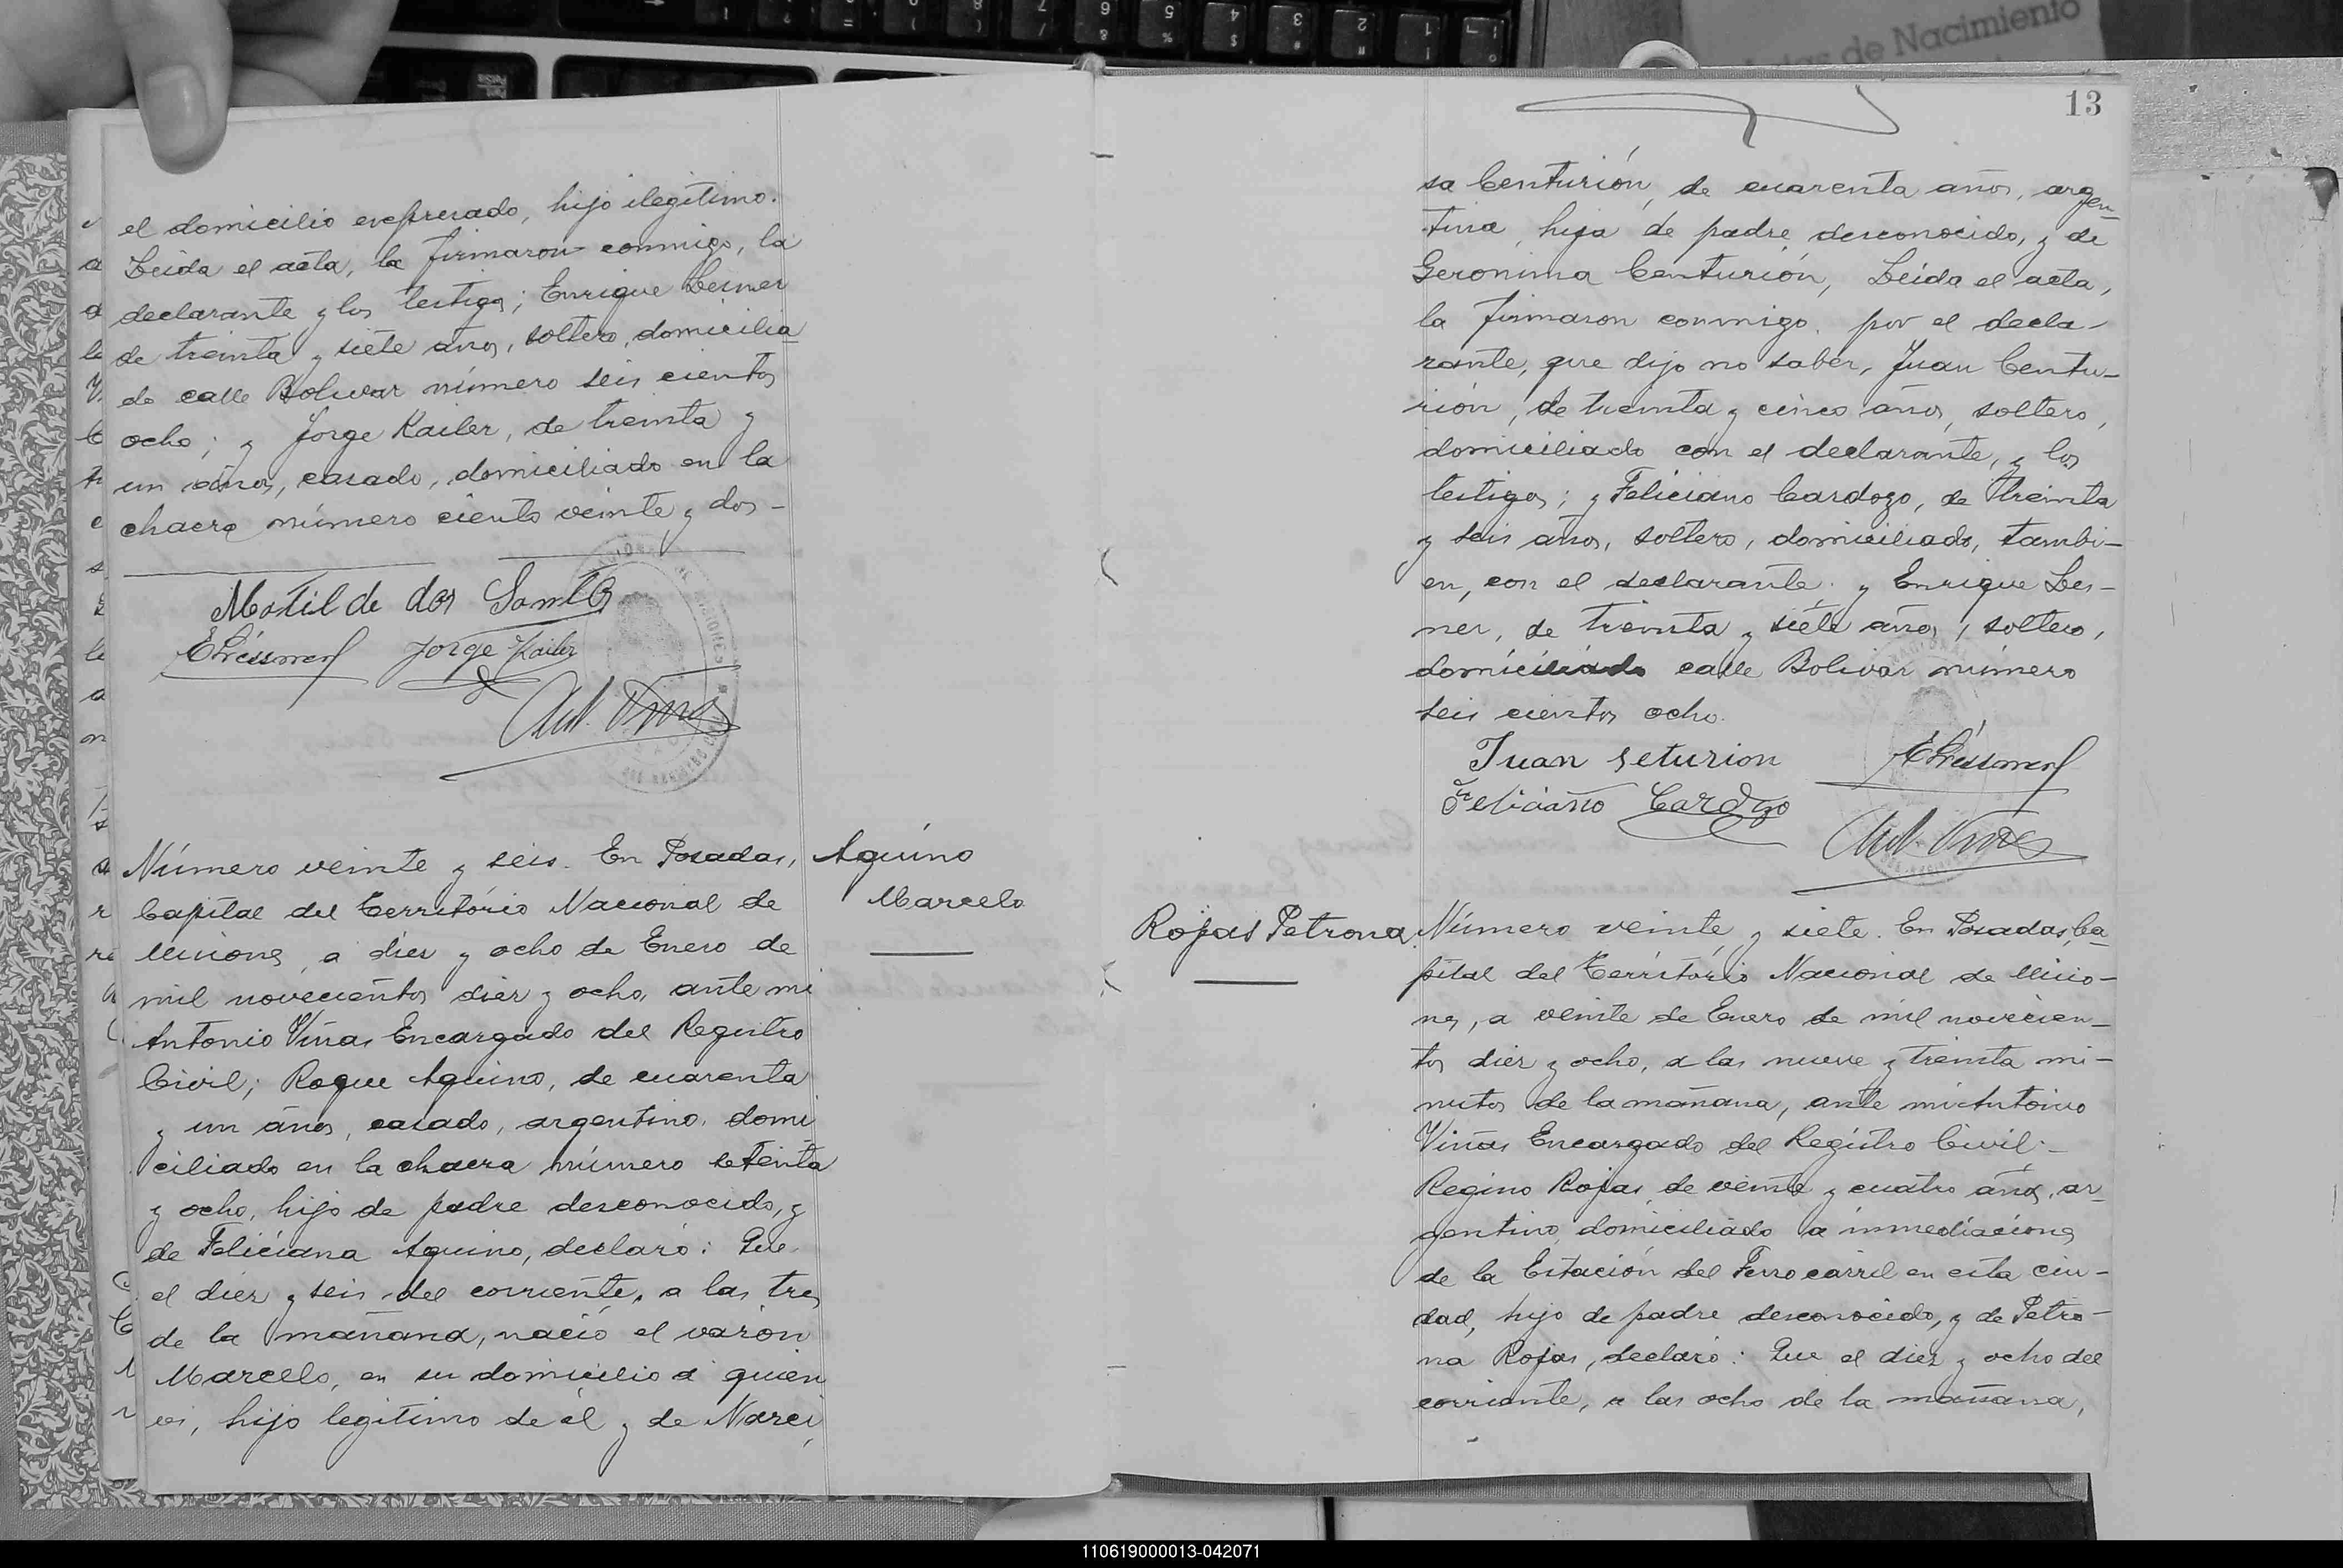 de Nacimiento
13
el domicilio expresado, hijo ilegitimo.
Leida el acta, la firmaron conmigo, la
declarante y los testigos; Enrique Lesner
de treinta y siete años, soltero, domicilia
do calle Bolivar número seis cientos
ocho; y Jorge Kailer, de treinta y
un años, casado, domiciliado en la
chacra número ciento veinte y dos-
Matilde dos Santos
Jorge Kailer
Ant. Viñas
Número veinte y seis. En Posadas,
Capital del Território Nacional de
Misiones, a diez y ocho de Enero de
mil novecientos diez y ocho, ante mi
Antonio Viñas Encargado del Registro
Civil; Roque Aquino, de cuarenta
y un años, casado, argentino, domi
ciliado en la chacra número setenta
y ocho, hijo de padre desconocido, y
de Feliciana Aquino, declaró: Que
el diez y seis del corriente, a las tres
de la mañana, nació el varón
Marcelo, en su domicilio a quien
vi, hijo legitimo de él y de Narci
Aquino
Marcelo
sa Centurión, de cuarenta años, argen-
tina, hija de padre desconocido, y de
Geronima Centurión, Leida el acta,
la firmaron conmigo, por el decla-
rante, que dijo no saber, Juan Centu-
rión, de treinta y cinco años, soltero,
domiciliado con el declarante, y los
testigos; y Feliciano Cardozo, de treinta
y seis años, soltero, domiciliado, tambi-
en, con el declarante, y Enrique Les-
ner, de treinta y siete años, soltero,
domiciliado calle Bolivar número
seis cientos ocho.
Juan seturion
Feliciano Cardozo
Ant. Viñas
Rojas Petrona
Número veinte y siete. En Posadas, Ca-
pital del Territorio Nacional de Misio-
nes, a veinte de Enero de mil novecien-
tos diez y ocho, a las nueve y treinta mi-
nutos de la mañana, ante mi Antonio
Viñas Encargado del Registro Civil-
Regino Rojas, de veinte y cuatro años, ar-
gentino, domiciliado a inmediaciones
de la Estación del Ferrocarril en esta ciu-
dad, hijo de padre desconocido, y de Petro-
na Rojas, declaró: Que el diez y ocho del
corriente, a las ocho de la mañana,
110619000013-042071